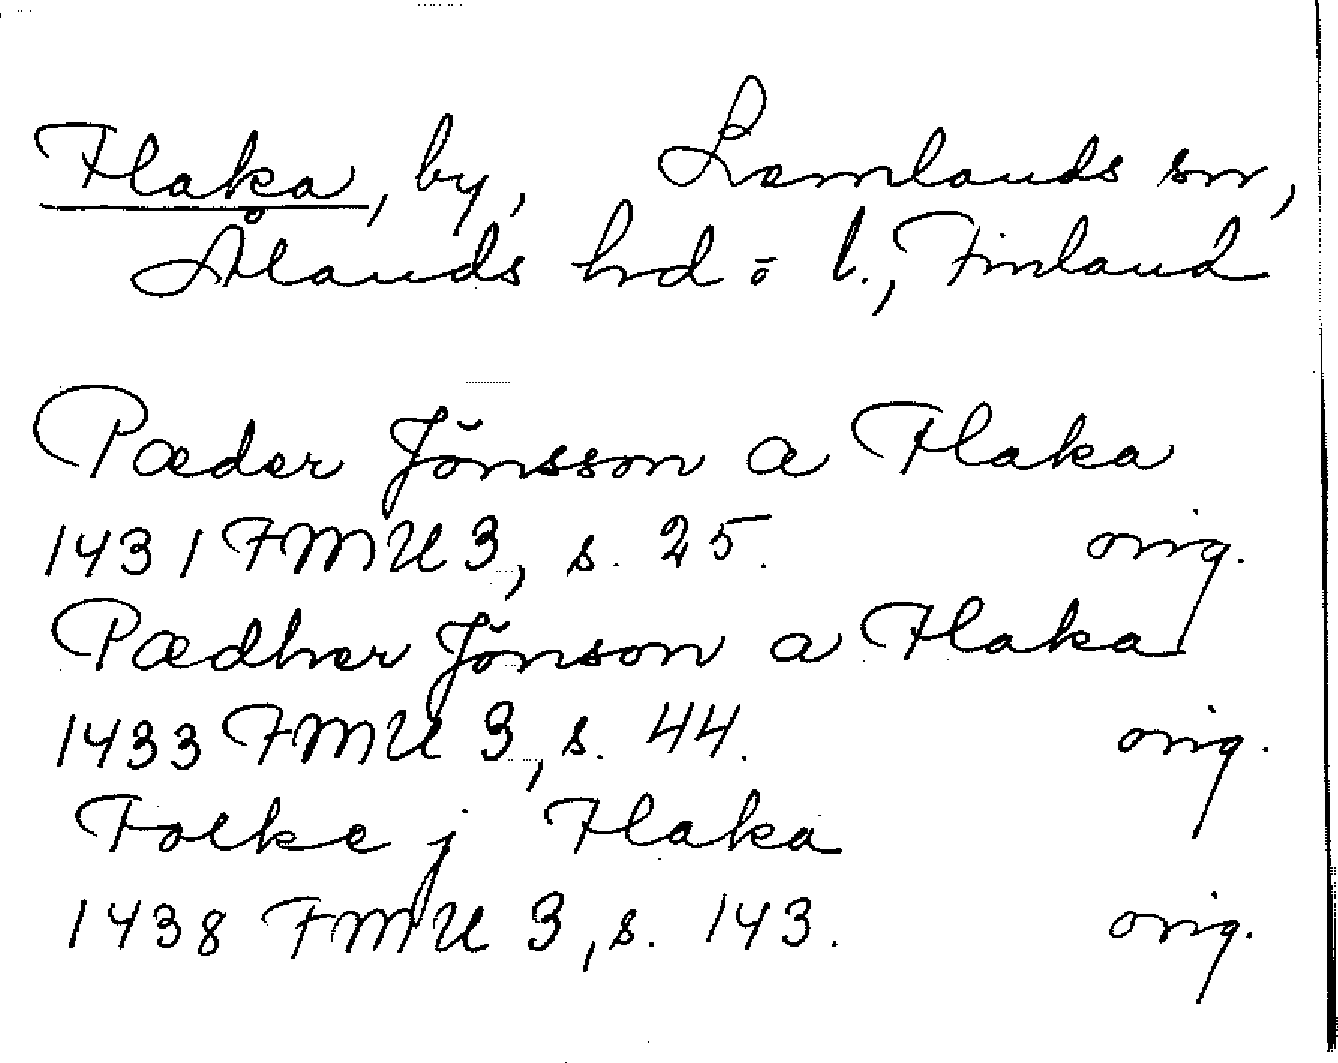 Flaka, by, Lemlands sn,
Ålands hrd o l., Finland
Pæder Jönsson a Flaka
1431 FMU 3, s. 25. orig.
Pædher Jönson a Flaka
1433 FMU 3, s. 44. orig.
Folke j Flaka
1438 FMU 3, s. 143. orig.